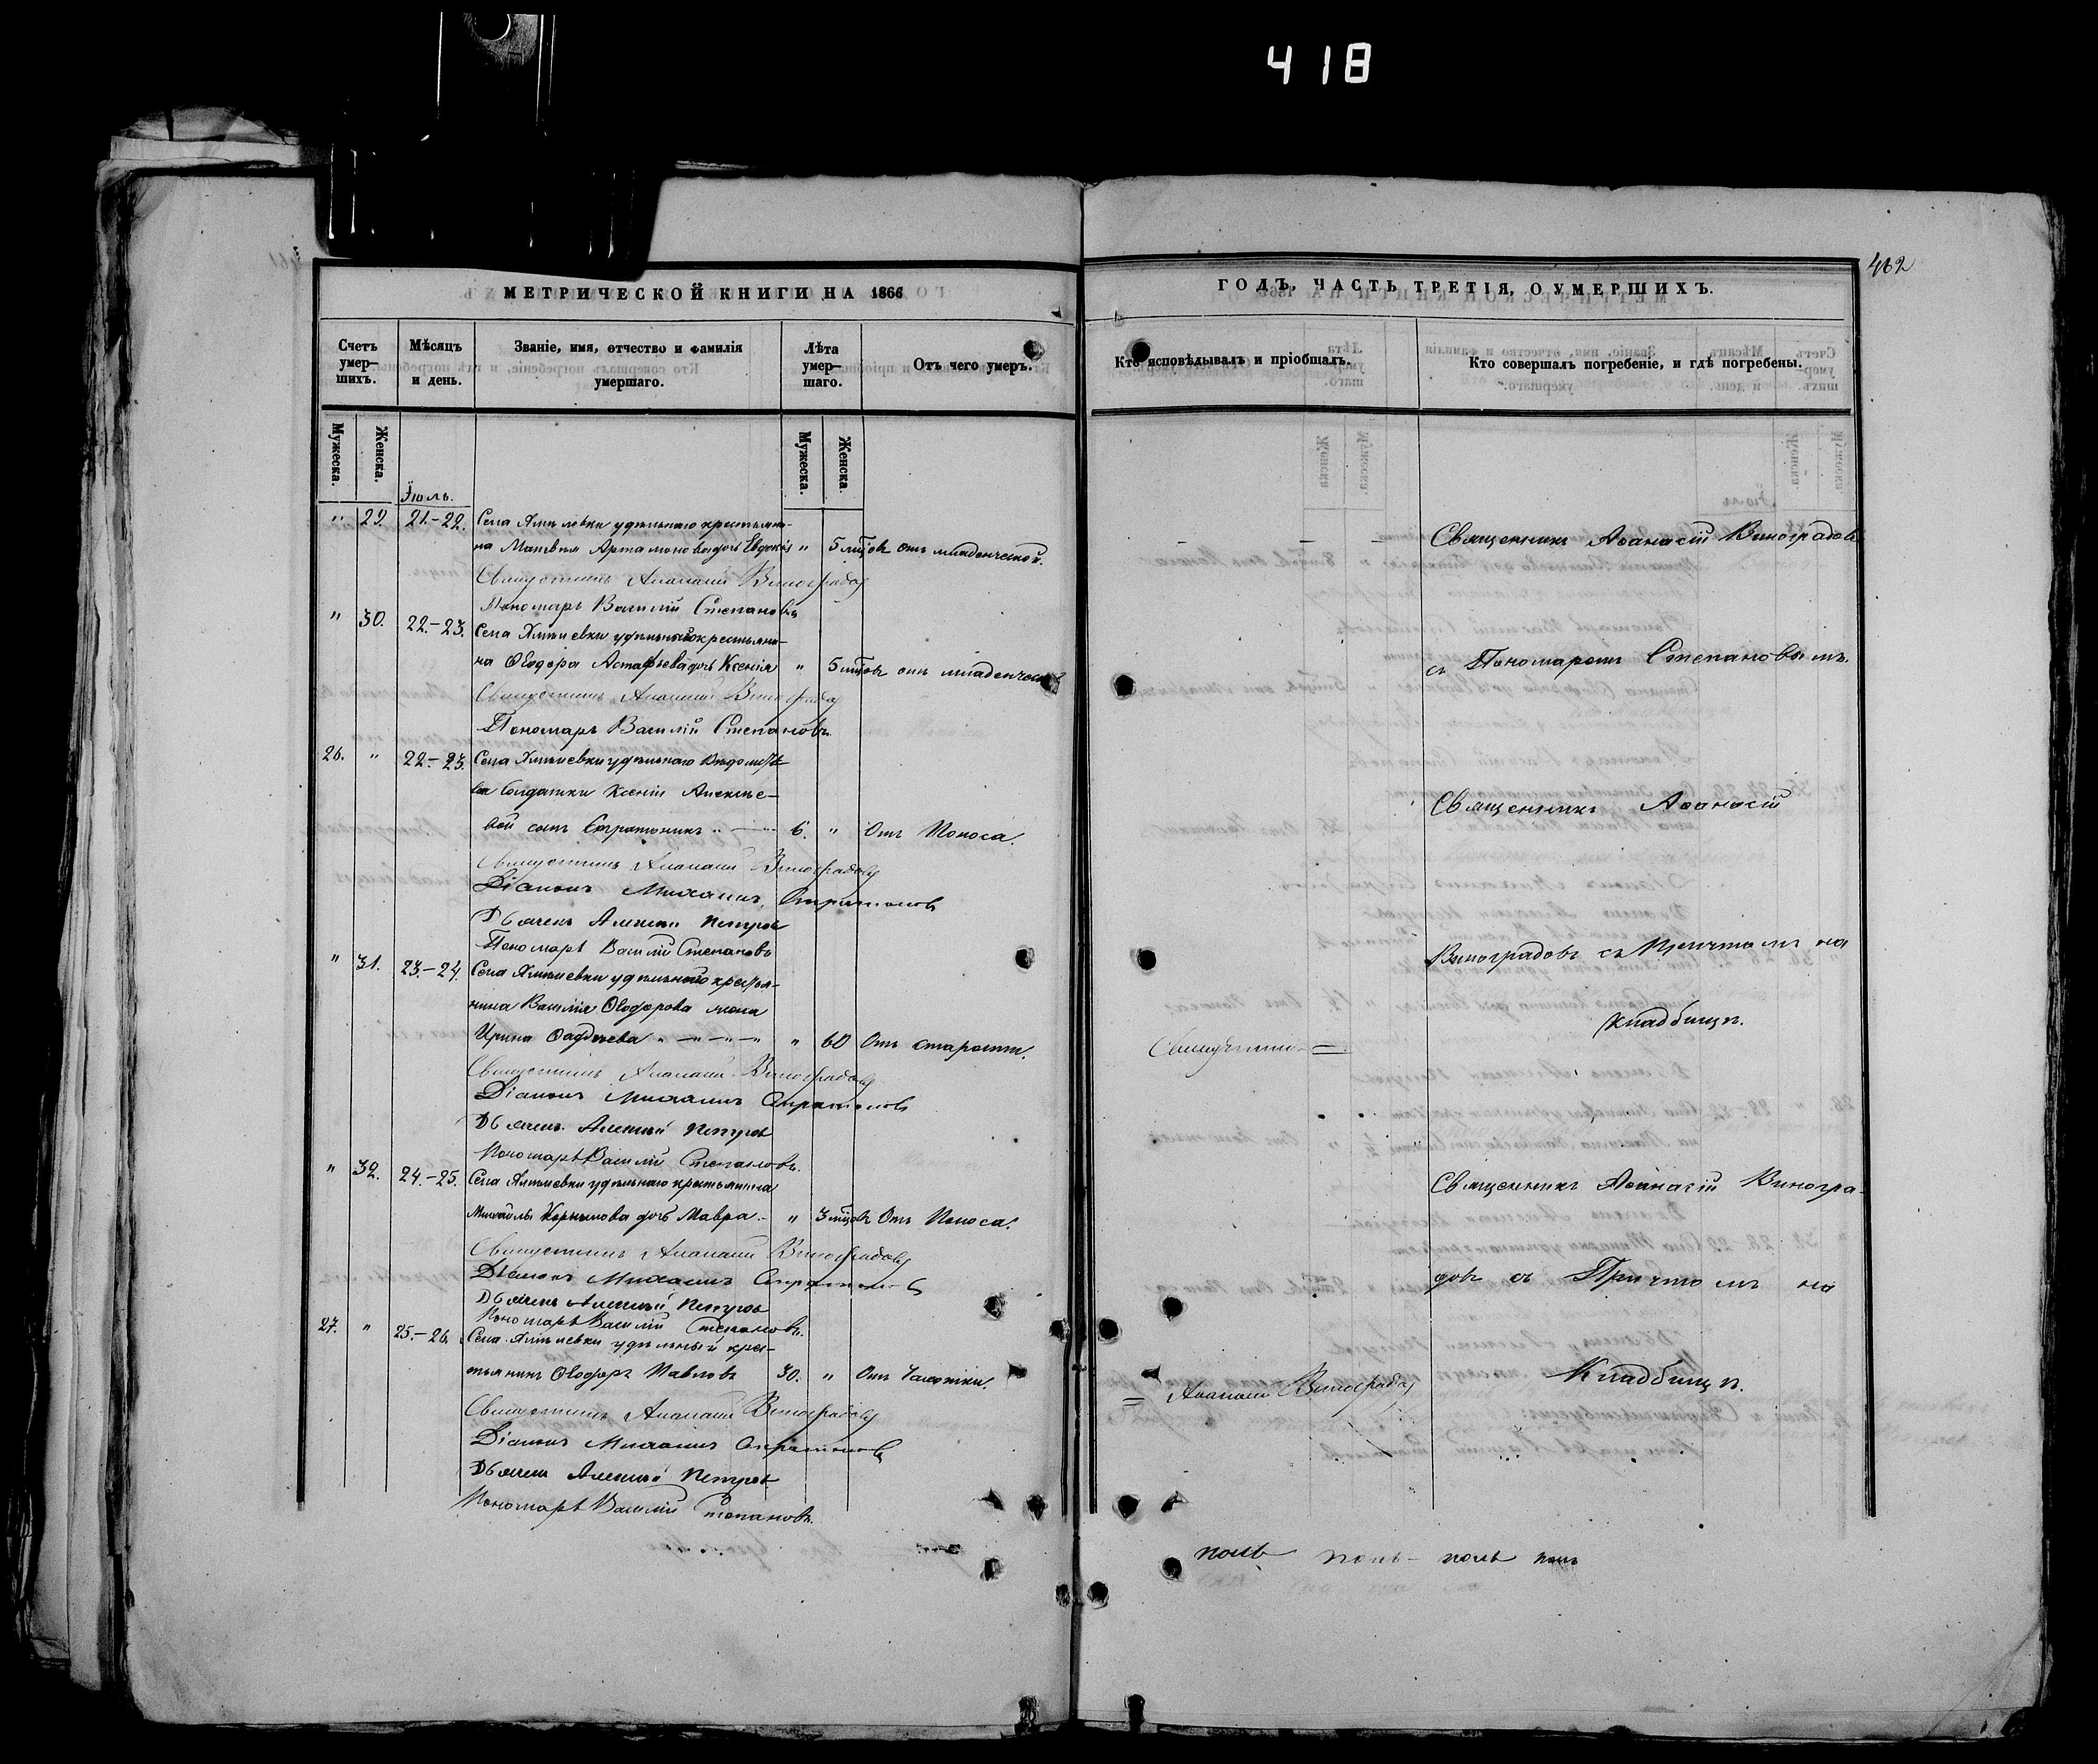 418
462
МЕТРИЧЕСКОЙ КНИГИ НА 1866
Счетъ умер-шихъ.
Мѣсяцъ и день.
Званіе, имя, отчество и фамилія умершаго.
Лѣта умер-шаго.
Отъ чего умеръ.
Мужеска.
Женска.
Мужеска.
Женска.
Іюль.
" 29. 21.-22. Села удѣльнаго крестьяни-
на Матвея Артамонова дочь Евдокія " 5 мцовъ отъ младенческой.
Священникъ Аѳанасій Виноградовъ
Пономарь Василій Степановъ
" 30. 22.-23. Села удѣльнаго крестьяни-
на Ѳеодора Астафьева дочь Ксенія " 5 мцовъ отъ младенческой
Священникъ Аѳанасій Виноградовъ
Пономарь Василій Степановъ
26. " 22.-23. Села удѣльнаго Вѣдомст
ва Солдатки Ксеніи Алексѣе-
вой сынъ 6. " Отъ Поноса.
Священникъ Аѳанасій Виноградовъ
Діаконъ Михаилъ
Дьячекъ Алексѣй Петровъ
Пономарь Василій Степановъ
" 31. 23.-24. Села удѣльнаго крестья-
нина Василія Ѳеодорова жена
Ирина Фадѣева " 60 Отъ старости.
Священникъ Аѳанасій Виноградовъ
Діаконъ Михаилъ
Дьячекъ Алексѣй Петровъ
Пономарь Василій Степановъ.
" 32. 24.-25. Села удѣльнаго крестьянина
Михайлы дочь Мавра.- " 3 мцовъ Отъ Поноса.
Священникъ Аѳанасій Виноградовъ
Діаконъ Михаилъ
Дьячекъ Алексѣй Петровъ
Пономарь Василій Степановъ.
27. " 25.-26. Села удѣльный крес-
тьянинъ Ѳеодоръ Павловъ 30. " Отъ Чахотки.
Священникъ Аѳанасій Виноградовъ
Діаконъ Михаилъ
Дьячекъ Алексѣй Петровъ
Пономарь Василій Степановъ.
ГОДЪ, ЧАСТЬ ТРЕТІЯ, О УМЕРШИХЪ.
Кто исповѣдывалъ и пріобщалъ.
Кто совершалъ погребеніе, и гдѣ погребены.
- - - Священникъ Аѳанасій Виноградовъ
съ Пономаремъ Степановымъ.
Священникъ Аѳанасій
Виноградовъ съ Причтомъ на
Кладбищѣ.
Священникъ =
Священникъ Аѳанасій Виногра-
довъ съ Причтомъ на
Кладбищѣ.
= Аѳанасій Виноградовъ